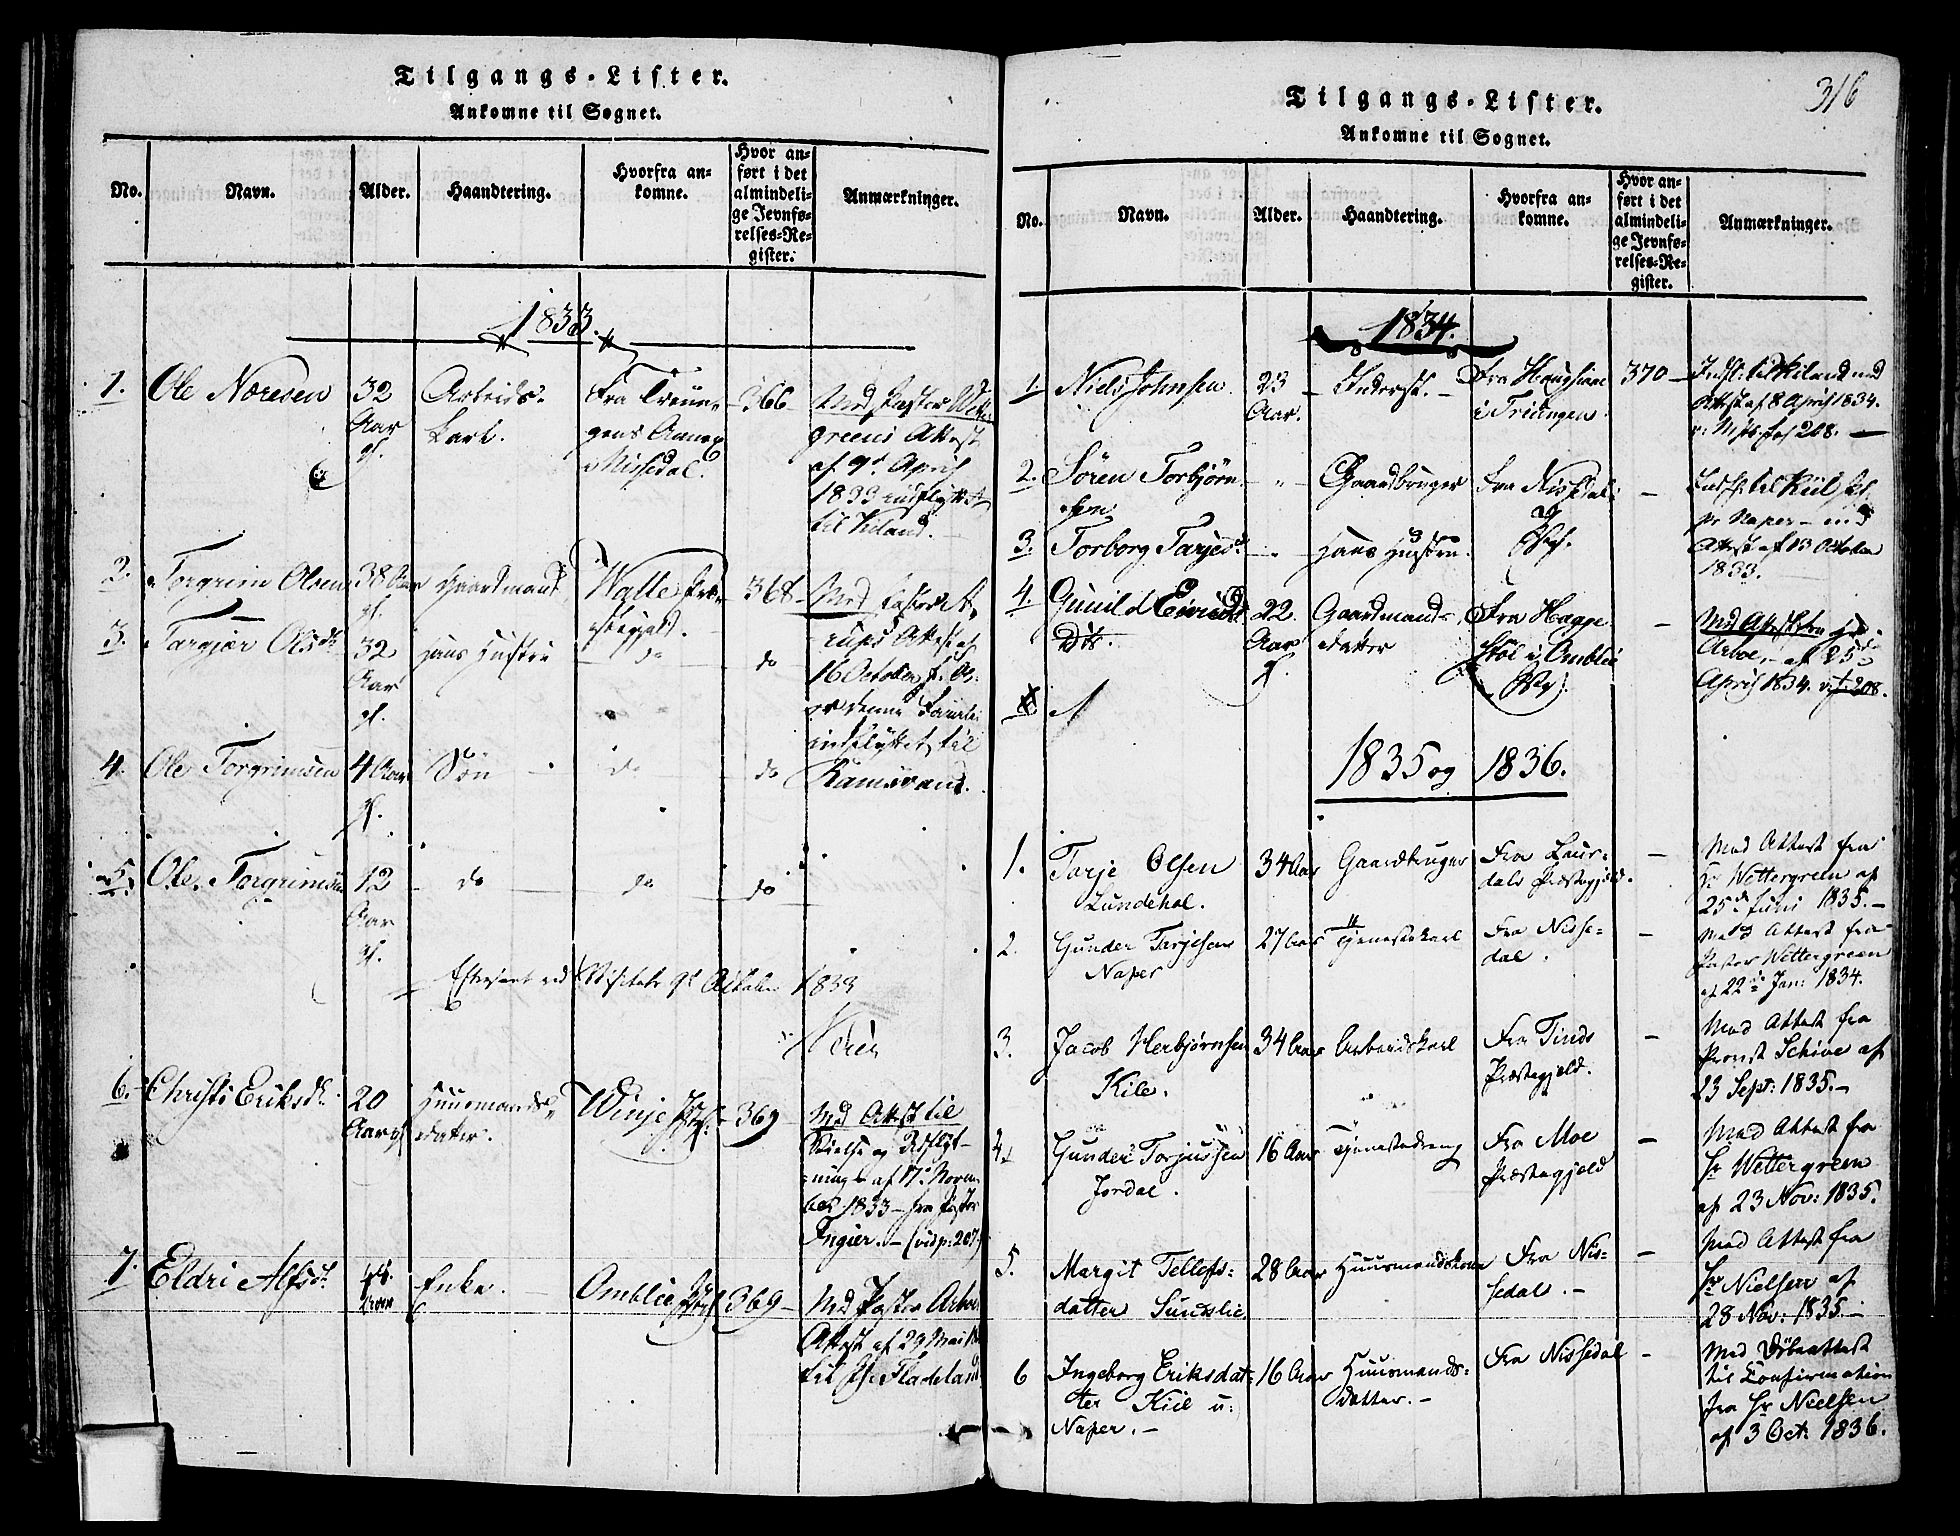 Tilgangs-Lister.
Ankomne til Sognet.
No.
Navn.
Alder.
Haandtering.
Hvorfra an-
komne.
Hvor an-
ført i det
almindeli-
ge Jevnfø-
relses-Re-
gister.
Anmærkninger.
1833.
1.
Ole Noresen
32
Aar
Arbeids-
karl.
Fra
Nissedal.
366
Med Pastor
greens Attest
af 9d April
1833 indflyttet
til Kiland.
2.
Torgrim Olsen
38 Aar
Gaardmand
Walle Præ-
stegjeld.
368
Med Pastor
Attest af
16 October
denne Familie
indflyttet til
3.
Targjær Olsd.
32
Aar
hans Hustru
do
do
4.
Ole Torgrimsen
4 Aar
Søn
do
do
5.
Ole Torgrimsen
12
Aar
do
do
do
Efterseet ved Visitats 9d October 1833
6.
Christi Eriksd.
20
Aar
Huusmands-
datter.
Winje
369
Med Attest til
af 17 Novem-
ber 1833 - fra Pastor
Ingier. - (vid p: 207.)
7.
Eldri Alfsd.
44
Enke.
Omblie
369
Med Pastor Arboe
Attest af 29 Mai
til Fladeland
316
Tilgangs-Lister.
Ankomne til Sognet.
No.
Navn.
Alder.
Haandtering.
Hvorfra an-
komne.
Hvor an-
ført i det
almindeli-
ge Jevnfø-
relses-Re-
gister.
Anmærkninger.
1834.
1.
Niels Johnsen
23
Aar.
Inderst.
Fra
370
Indfl: til Kiland med
Attest af 8 April 1834.
208.
2.
Søren Torbjørn-
sen
Gaardbruger
Fra Nissedal
Indfl: til Kiil
Naper - med
Attest af 13 October
1833.
3.
Torborg Tarjed.
hans Hustru.
4.
Gunild Eivinds
Dtr.
22
Aar
Gaardmands-
datter
Fra Hagge-
støl i Omblie
Med Attest fra Hr.
Arboe, af 25d
April 1834. 208.
1835 og 1836.
1.
Tarje Olsen
Lundehol.
34 Aar
Gaardbruger
Fra Laur-
dals Præstegjeld.
Med Attest fra
Hr Wettergreen af
25de Juni 1835.
2.
Gunder Tarjesen
Naper
27 Aar
Tjenestekarl
Fra Nisse-
dal.
Med Attest fra
Pastor Wettergreen
af 22de Jan: 1834.
3.
Jacob Herbjørnsen
Kile.
34 Aar
Arbeidskarl
Fra Tinds
Præstegjeld.
Med Attest fra
Provst Schive af
23 Sept: 1835.
4.
Gunder Torjussen
Jordal.
16 Aar
Tjenestedreng
Fra Moe
Præstegjeld
Med Attest fra
Hr Wettergreen
af 23 Nov: 1835.
5.
Margit Tellefs-
datter Sundslie.
28 Aar
Huusmandskone
Fra Nis-
sedal.
Med Attest fra
Hr Nielsen af
28 Nov: 1835.
6
Ingeborg Eriksdat-
ter Kiil u:
Naper.
16 Aar
Huusmands-
datter.
Fra Nissedal
Med Døbeattest
til Confirmation
fra Hr Nielsen
af 3 Oct: 1836.